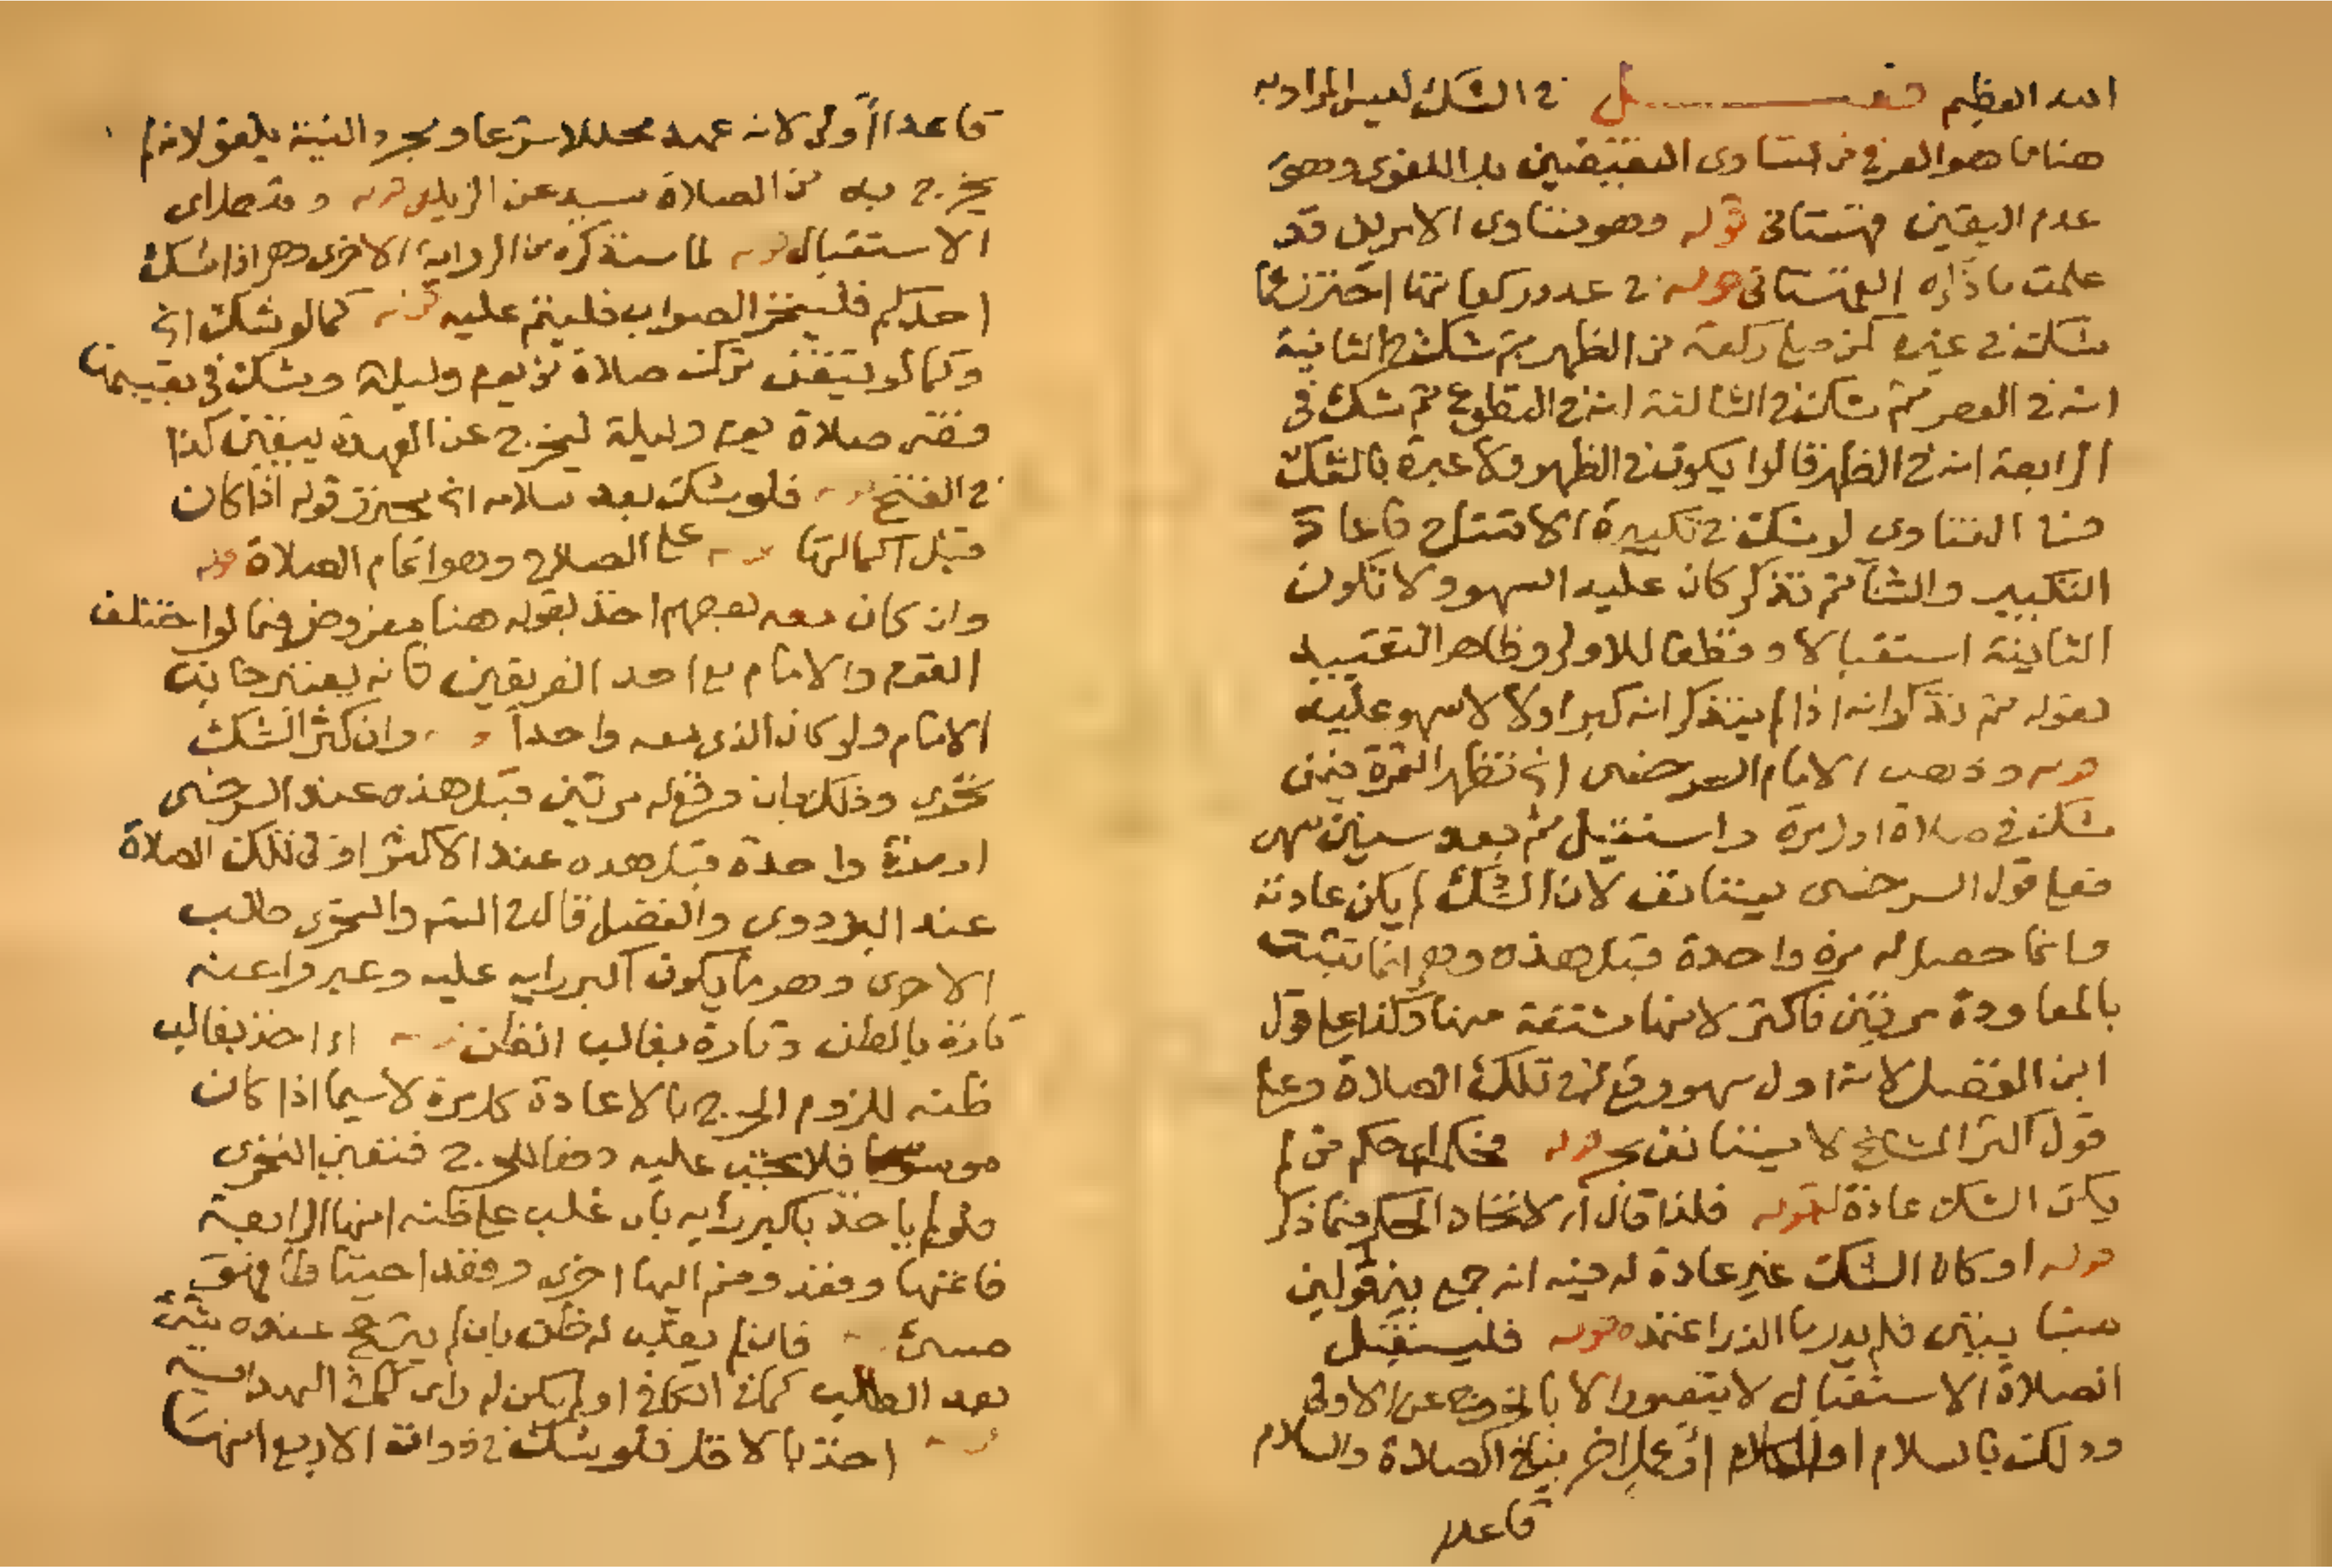 الله العظيم فصل في الشك ليس المراد به
هنا ما هو العرفي من تساوي النقيضين بل اللغوي وهو
عدم اليقين قهستاني قوله وهو تساوي الامرين قد
علمت ما ذكره القهستاني قوله في عدد ركعاتها احترز عما
شك في غيره كمن صلى ركعة من الظهر ثم شك في الثانية
انه في العصر ثم شك في الثالثة انه في التطوع ثم شك في
الرابعة انه في الظهر قالوا يكون في الظهر ولا عبرة بالشك
الفتاوى لو شك في تكبيرة الافتتاح فاعاد
التكبير والثنا ثم تذكر كان عليه السهو ولا تكون
الثانية استقبالا وقطعا للاولى وظاهر التقييد
بقوله ثم تذكر انه اذا لم يتذكر انه كبر اولا لا سهو عليه
قوله وذهب الامام السرخسي الخ تظهر الثمرة فيمن
شك في صلاة اول مرة واستقبل ثم بعد سنين سهى
فعلى قول السرخسي يستانف لان الشك لم يكن عادته
وانما حصل له مرة واحدة قبل هذه وهي انما تثبت
بالمعاودة مرتين فاكثر لانها مشتقة منها وكذا على قول
ابن الفضل لانه اول سهو وقع في تلك الصلاة وعلى
قول اكثر المشايخ لا يستانف بحر قوله فحكم اي حكم من لم
يكن الشك عادة له قوله فلذا قال اي لاتحاد الحكم فيما ذكر
قوله او كان الشك غير عادة له فيه انه جمع بين قولين
فلم يدر ما الذي اعتمده قوله فليستقبل
الصلاة الاستقبال لا يتصور الا بالخروج عن الاولى
وذلك بالسلام او الكلام او عمل اخر ينافي الصلاة والسلام
قاعدا
قاعدا اولى لانه عهد محللا شرعا ومجرد النية يلغو لانه لم
يخرج به من الصلاة سيد عن الزيلعي قوله اي
الاستقبال قوله لما سنذكره من الرواية الاخرى وهي اذا شك
احدكم فليتحر الصواب فليتم عليه قوله كما لو شك الخ
وكما لو تيقن ترك صلاة من يوم وليلة وشك في تعيينها
فقضى صلاة يوم وليلة ليخرج عن العهدة بيقين كذا
في الفتح قوله فلو شك بعد سلامه الخ محترز قوله اذا كان
قبل اكمالها قوله على الصلاح وهو اتمام الصلاة قوله
وان كان معه بعضهم اخذ بقوله هنا مفروض فيما لو اختلف
القوم والامام مع احد الفريقين فانه يعتبر جانب
الامام ولو كان الذي معه واحدا قوله وان كثر الشك
تحرى وذلك بان وقع له مرتين قبل هذه عند السرخسي
او مرة واحدة قبل هذه عند الاكثر او في تلك الصلاة
عند البزدوي والفضل قال في النهر والتحري طلب
الاحرى وهو ما يكون اكبر رايه عليه وعبروا عنه
تارة بالظن وتارة بغالب الظن قوله اي اخذ بغالب
ظنه للزوم الحرج بالاعادة كل مرة لاسيما اذا كان
موسوسا فلا يجب عليه دفعا للحرج فتعين التحري
فلو لم ياخذ باكبر رأيه بان غلب على ظنه انها الرابعة
فاتمها وقعد وضم اليها اخرى وقعد احتياطا فهو
مسئ قوله فان لم يغلب له ظن بان لم يترجح عنده شئ
بعد الطلب كما في الكافي او لم يكن له راي كما في الهداية
قوله اخذ بالاقل فلو شك في ذوات الاربع انها